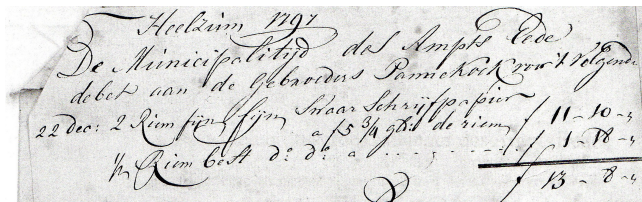 Heelzum 1797
De Municipalitijd des Ampts Eede
debet aan de Gebroeders Pannekock voor 't Volgende
22 Dec: 2 Riem fijn, fijn Swaar Schrijfpapier
a f 5 3/4 gl: de riem f 11 - 10 - "
1/2 Riem best do: do: a . . . . . . f 1 - 18 - "
f 13 - 8 - "